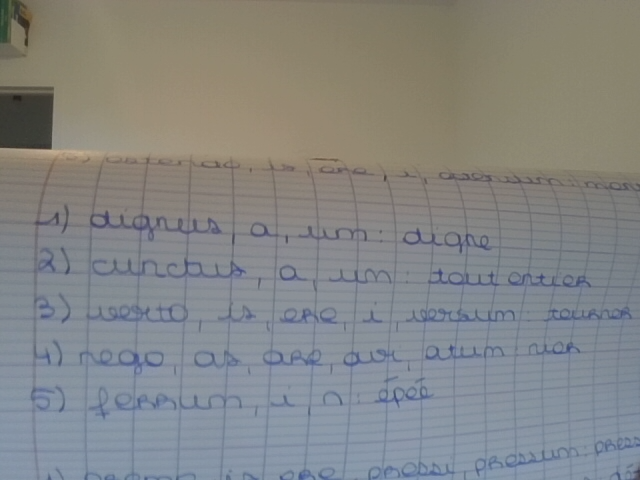 ostendo, is, ere, i,
1) dignus, a, um : digne
2) cunctus, a, um : tout entier
3) verto, is, ere, i, versum : tourner
4) nego, as, are, avi, atum : nier
5) ferrum, i, n : épée
is ere pressi, pressum : press